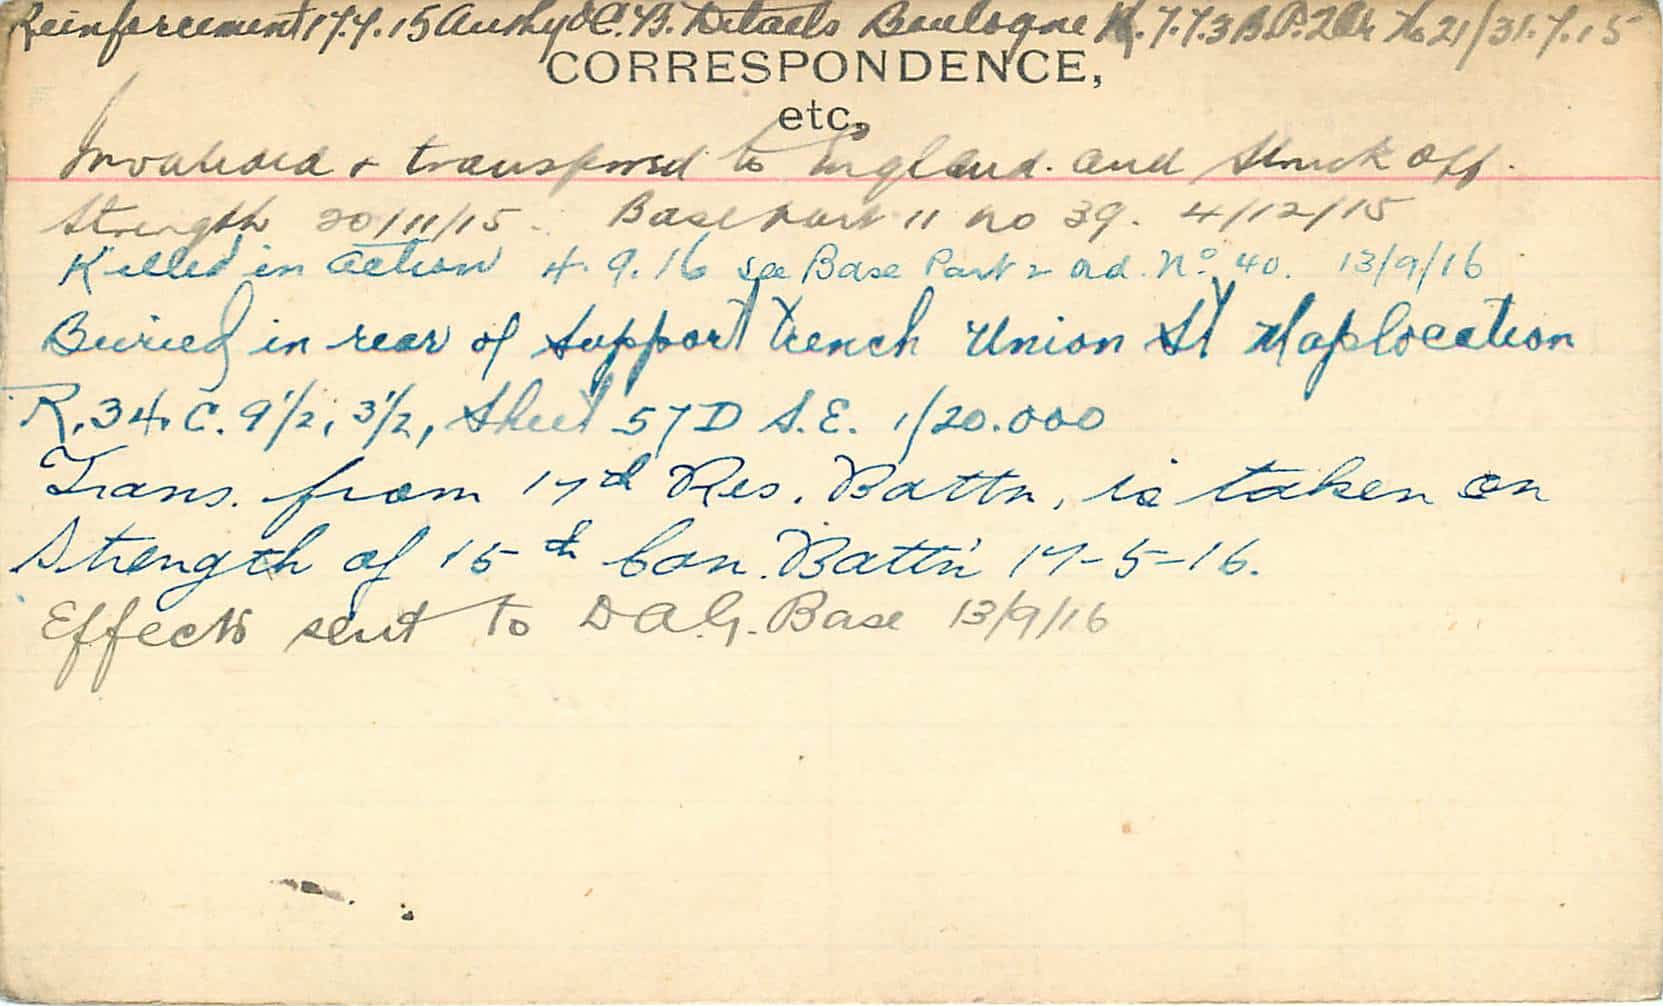 Reinforcement 17.7.15 Authy O.C. B. Details Boulogne K.7.7.3 B.P.2 Or No 21/31.7.15
CORRESPONDENCE,
etc.
Invalided + transferred to England. and Struck off.
Strength 20/11/15. Base Part 11 No 39. 4/12/15
Killed in action 4.9.16 see Base Part 2 ord. No. 40. 13/9/16
Buried in rear of support trench Union St Map location
R.34.C.9½, 3½, Sheet 57D S.E. 1/20.000
Trans. from 17th Res. Battn, is taken on
Strength of 15th Can. Batt'n 17-5-16.
Effects sent to D.A.G. Base 13/9/16